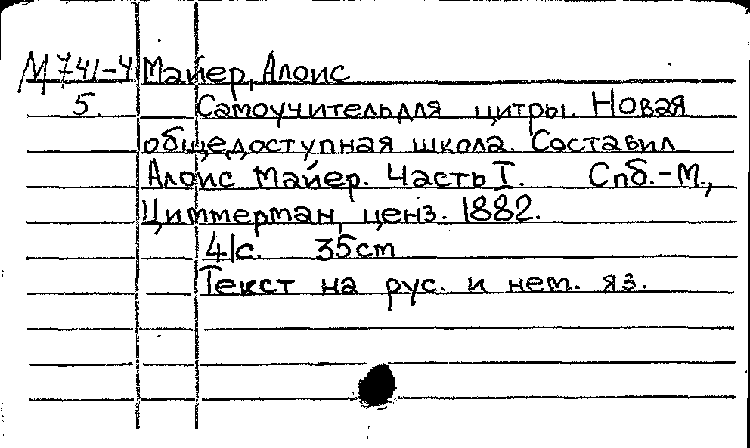 М 741-4 Майер, Алоис
5. Самоучитель для цитры. Новая
общедоступная школа. Составил
Алоис Майер. Часть I. Спб.-М.,
Циммерман, ценз. 1882.
41с. 35cm
Текст на рус. и нем. яз.